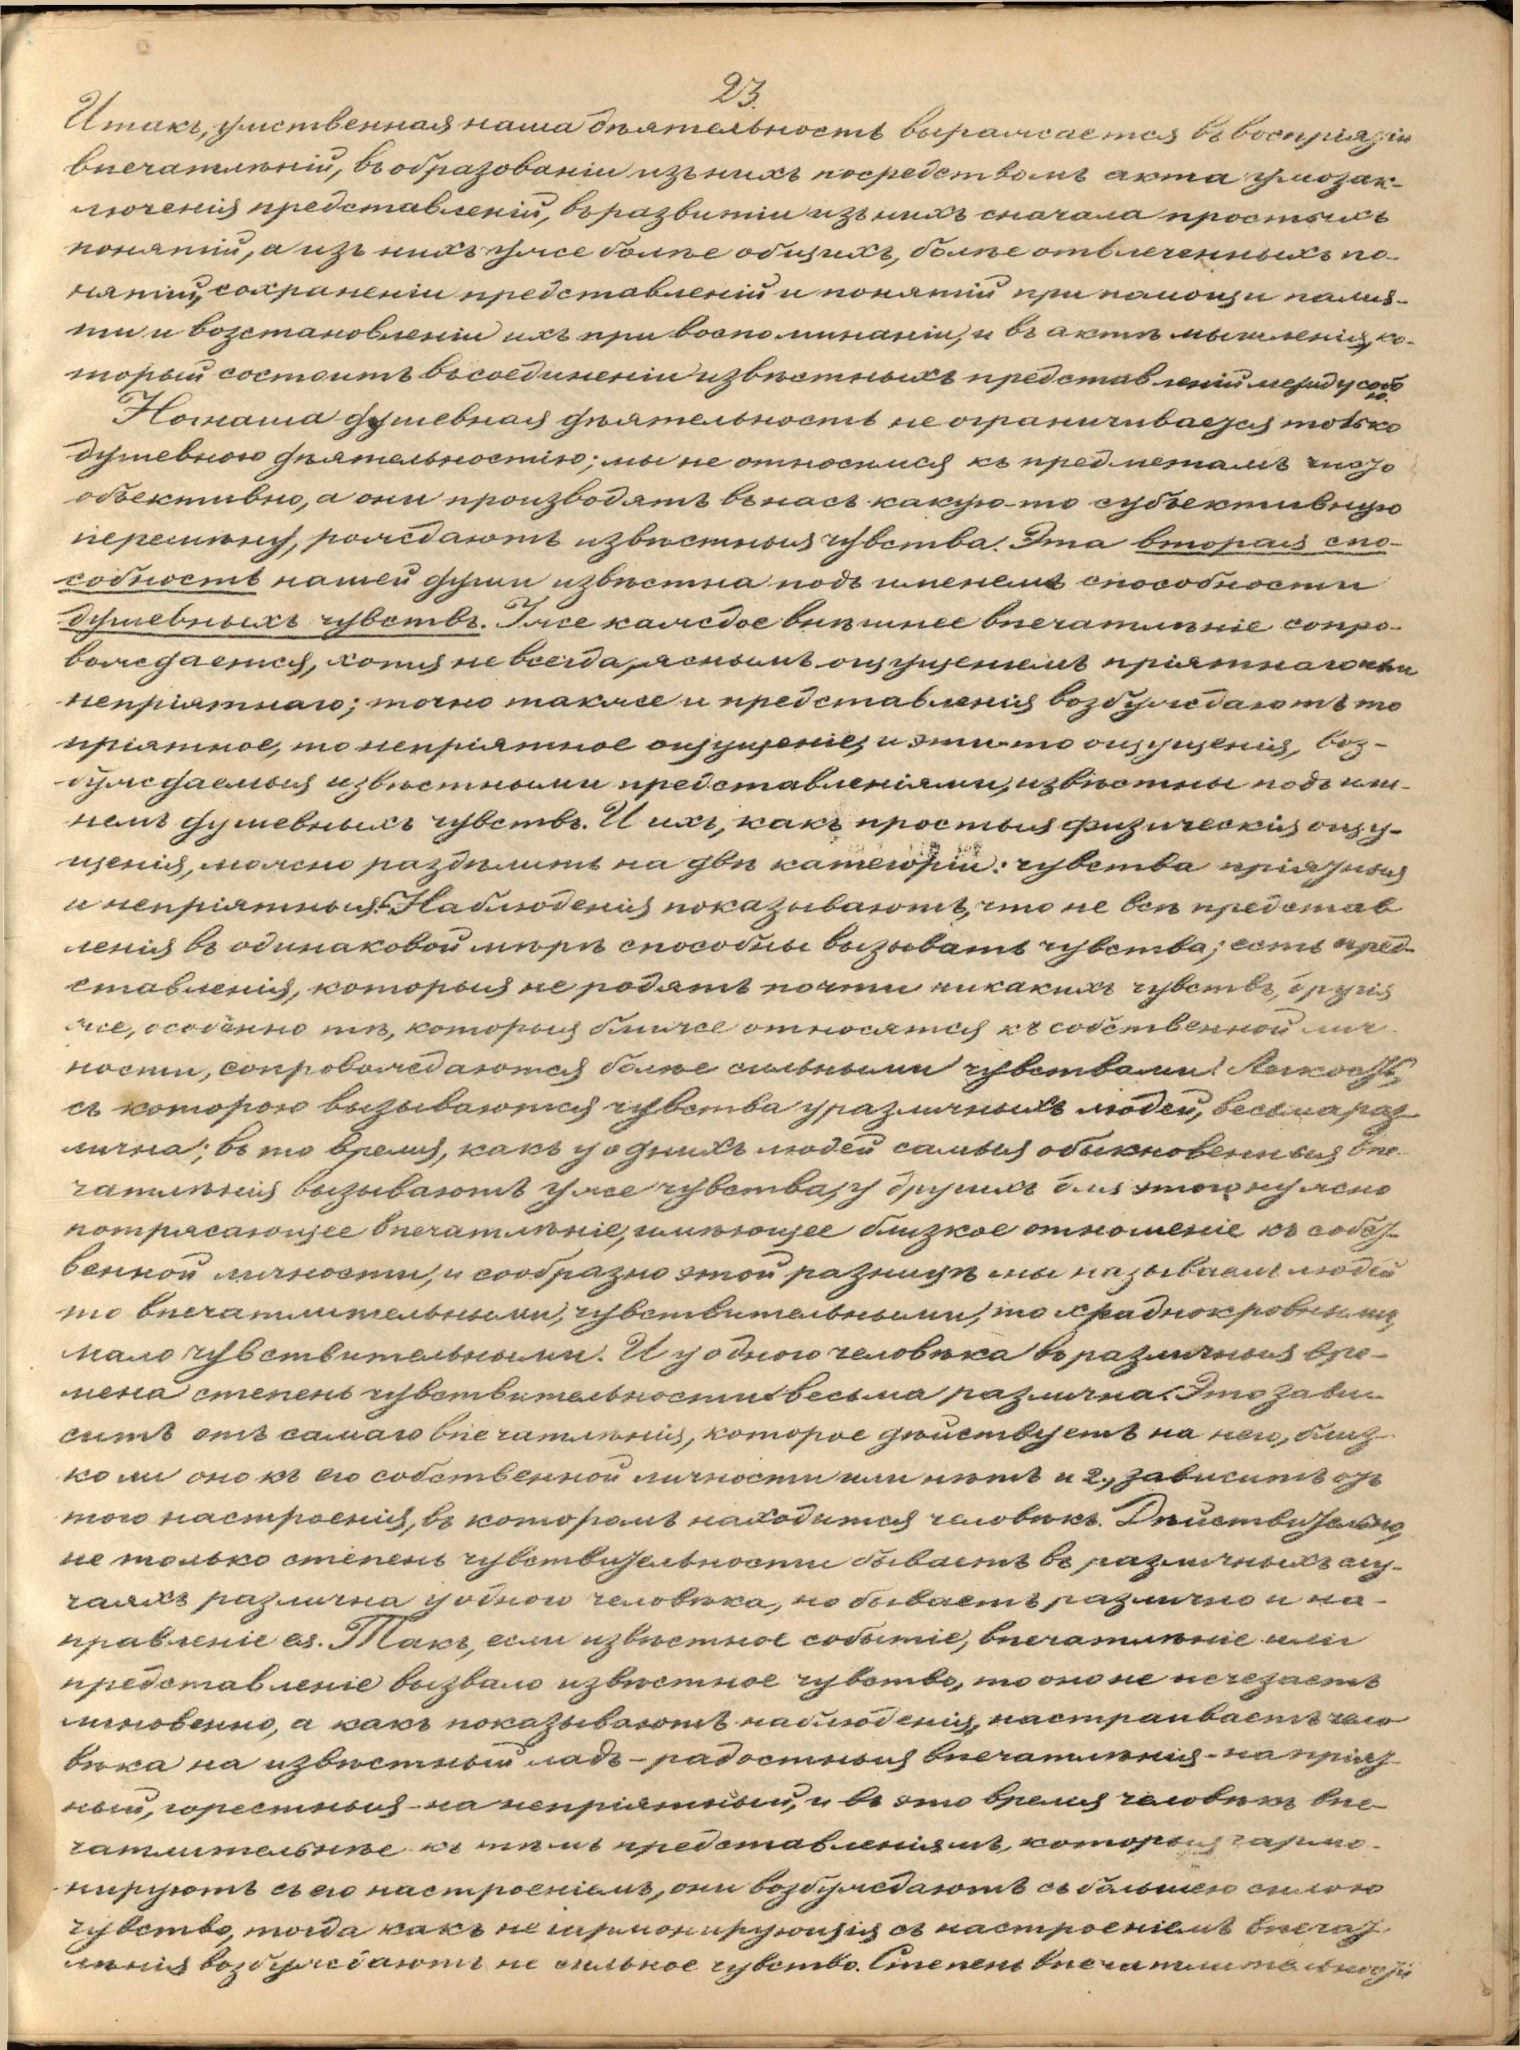 23.
Итакъ, умственная наша дѣятельность выражается въ воспріятіи
впечатлѣній, въ образованіи изъ нихъ посредствомъ акта умозак-
люченія представленій, въ развитіи изъ нихъ сначала простыхъ
понятій, а изъ нихъ уже болѣе общихъ, болѣе отвлеченныхъ по-
нятій, сохраненіи представленій и понятій при помощи памя-
ти и возстановленіи ихъ при воспоминаніи, и въ актѣ мышленія, ко-
торый состоитъ въ соединеніи извѣстныхъ представленій между собою.
Но наша душевная дѣятельность не ограничивается только
душевною дѣятельностію; мы не относимся къ предметамъ чисто
объективно, а они производятъ въ насъ какую-то субъективную
перемѣну, рождаютъ извѣстныя чувства. Эта вторая спо-
собность нашей души извѣстна подъ именемъ способности
душевныхъ чувствъ. Уже каждое внѣшнее впечатлѣніе сопро-
вождается, хотя не всегда, яснымъ ощущеніемъ пріятнаго или
непріятнаго; точно также и представленія возбуждаютъ то
пріятное, то непріятное ощущеніе, и эти-то ощущенія, воз-
буждаемыя извѣстными представленіями, извѣстны подъ име-
немъ душевныхъ чувствъ. И ихъ, какъ простыя физическія ощу-
щенія, можно раздѣлить на двѣ категоріи: чувства пріятныя
и непріятныя. Наблюденія показываютъ, что не всѣ представ
ленія въ одинаковой мѣрѣ способны вызывать чувства; есть пред-
ставленія, которыя не родятъ почти никакихъ чувствъ, другія
же, особенно тѣ, которыя ближе относятся къ собственной лич-
ности, сопровождаются болѣе сильными чувствами. Легкость,
съ которою вызываются чувства у различныхъ людей, весьма раз-
лична; въ то время, какъ у однихъ людей самыя обыкновенныя впе-
чатлѣнія вызываютъ уже чувства, у другихъ для этого нужно
потрясающее впечатлѣніе, имѣющее близкое отношеніе къ собст-
венной личности, и сообразно этой разницѣ мы называемъ людей
то впечатлительными, чувствительными, то хладнокровными,
мало чувствительными. И у одного человѣка въ различныя вре-
мена степень чувствительности весьма различна. Это зави-
ситъ отъ самаго впечатлѣнія, которое дѣйствуетъ на него, близ-
ко ли оно къ его собственной личности или нѣтъ и 2, зависитъ отъ
того настроенія, въ которомъ находится человѣкъ. Дѣйствительно,
не только степень чувствительности бываетъ въ различныхъ слу-
чаяхъ различна у одного человѣка, но бываетъ различно и на-
правленіе ея. Такъ, если извѣстное событіе, впечатлѣніе или
представленіе вызвало извѣстное чувство, то оно не исчезаетъ
мгновенно, а какъ показываютъ наблюденія, настраиваетъ чело
вѣка на извѣстный ладъ - радостныя впечатлѣнія - на пріят-
ный, горестныя - на непріятный, и въ это время человѣкъ впе-
чатлительнѣе къ тѣмъ представленіямъ, которыя гармо-
нируютъ съ его настроеніемъ, они возбуждаютъ съ большею силою
чувство, тогда какъ не гармонирующія съ настроеніемъ впечат
лѣнія возбуждаютъ не сильное чувство. Степень впечатлительности